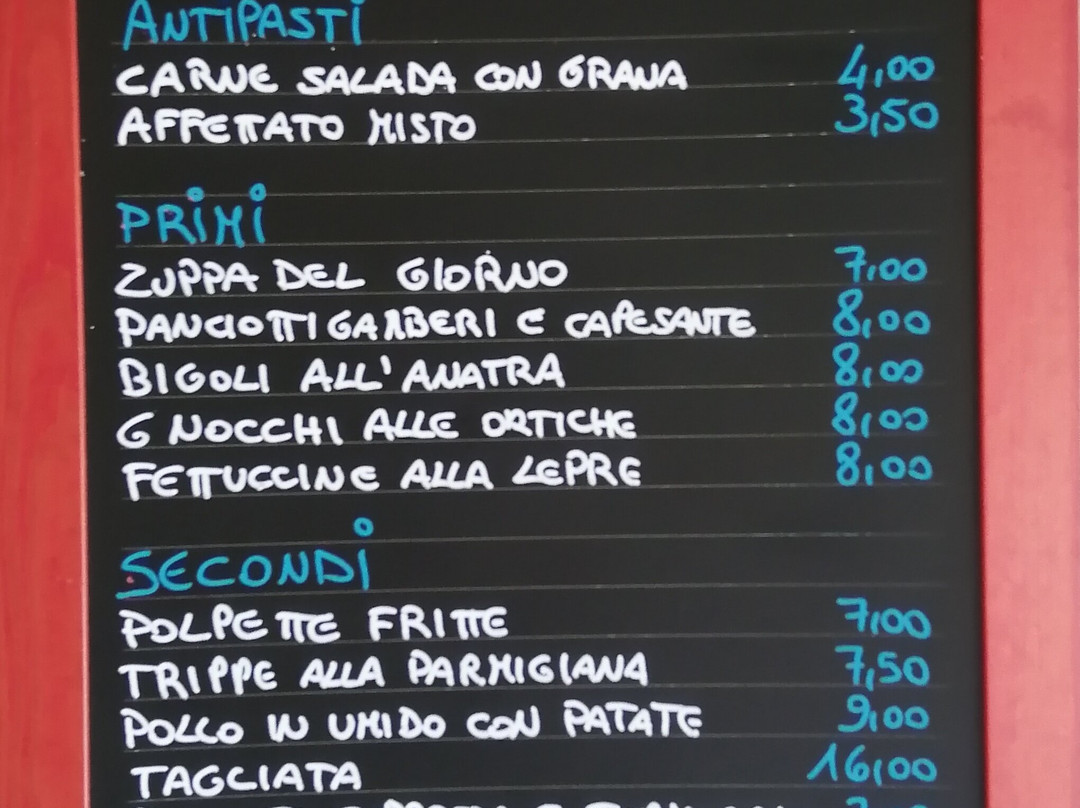 ANTIPASTI
CARNE SALADA CON GRANA 4,00
AFFETTATO MISTO 3,50
PRIMI
ZUPPA DEL GIORNO 7,00
PANCIOTTI GAMBERI E CAPESANTE 8,00
BIGOLI ALL'ANATRA 8,00
GNOCCHI ALLE ORTICHE 8,00
FETTUCCINE ALLA LEPRE 8,00
SECONDI
POLPETTE FRITTE 7,00
TRIPPE ALLA PARMIGIANA 7,50
POLLO IN UMIDO CON PATATE 9,00
TAGLIATA 16,00